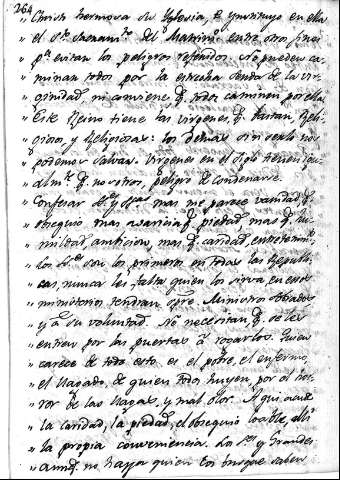 264
„ Christo hermosea su Yglesia, e ynstituyo en ella
„ el Sto Sacramto del Matrimo entre otros fines
„ pa evitar los peligros referidos. No pueden ca-
„ minar todos por la estrecha senda de la vir-
„ ginidad, ni conviene q. todos caminen por ella
„ Este Reino tiene las virgenes, q. bastan, Reli-
„ giosos, y Religiosas: los demas sin serlo nos
„ podemos salvar. Virgenes en el siglo tienen
„ q. nosotros, peligro de condenarse.
„ Confesar mas me parece vanidad, q.
„ obsequio, mas avaricia, q. piedad, mas q. hu-
„ mildad, ambicion, mas q. caridad,
„ Los son los primeros en todas las Republi-
„ cas, nunca les falta quien los sirva en esos
„ ministerios, tendran spre. Ministros sobrados
„ y a su voluntad. No necesitan, q. se les
„ entren por las puertas a rogarlos. Quien
„ carece de todo esto es el pobre, el enfermo,
„ el llagado, de quien todos huyen, por el hor-
„ ror de las llagas, y mal olor. Aqui acude
„ la caridad, la piedad, el obsequio loable,
„ la propia conveniencia. Los y Grandes
„ aunq. no haya quien los busque saben